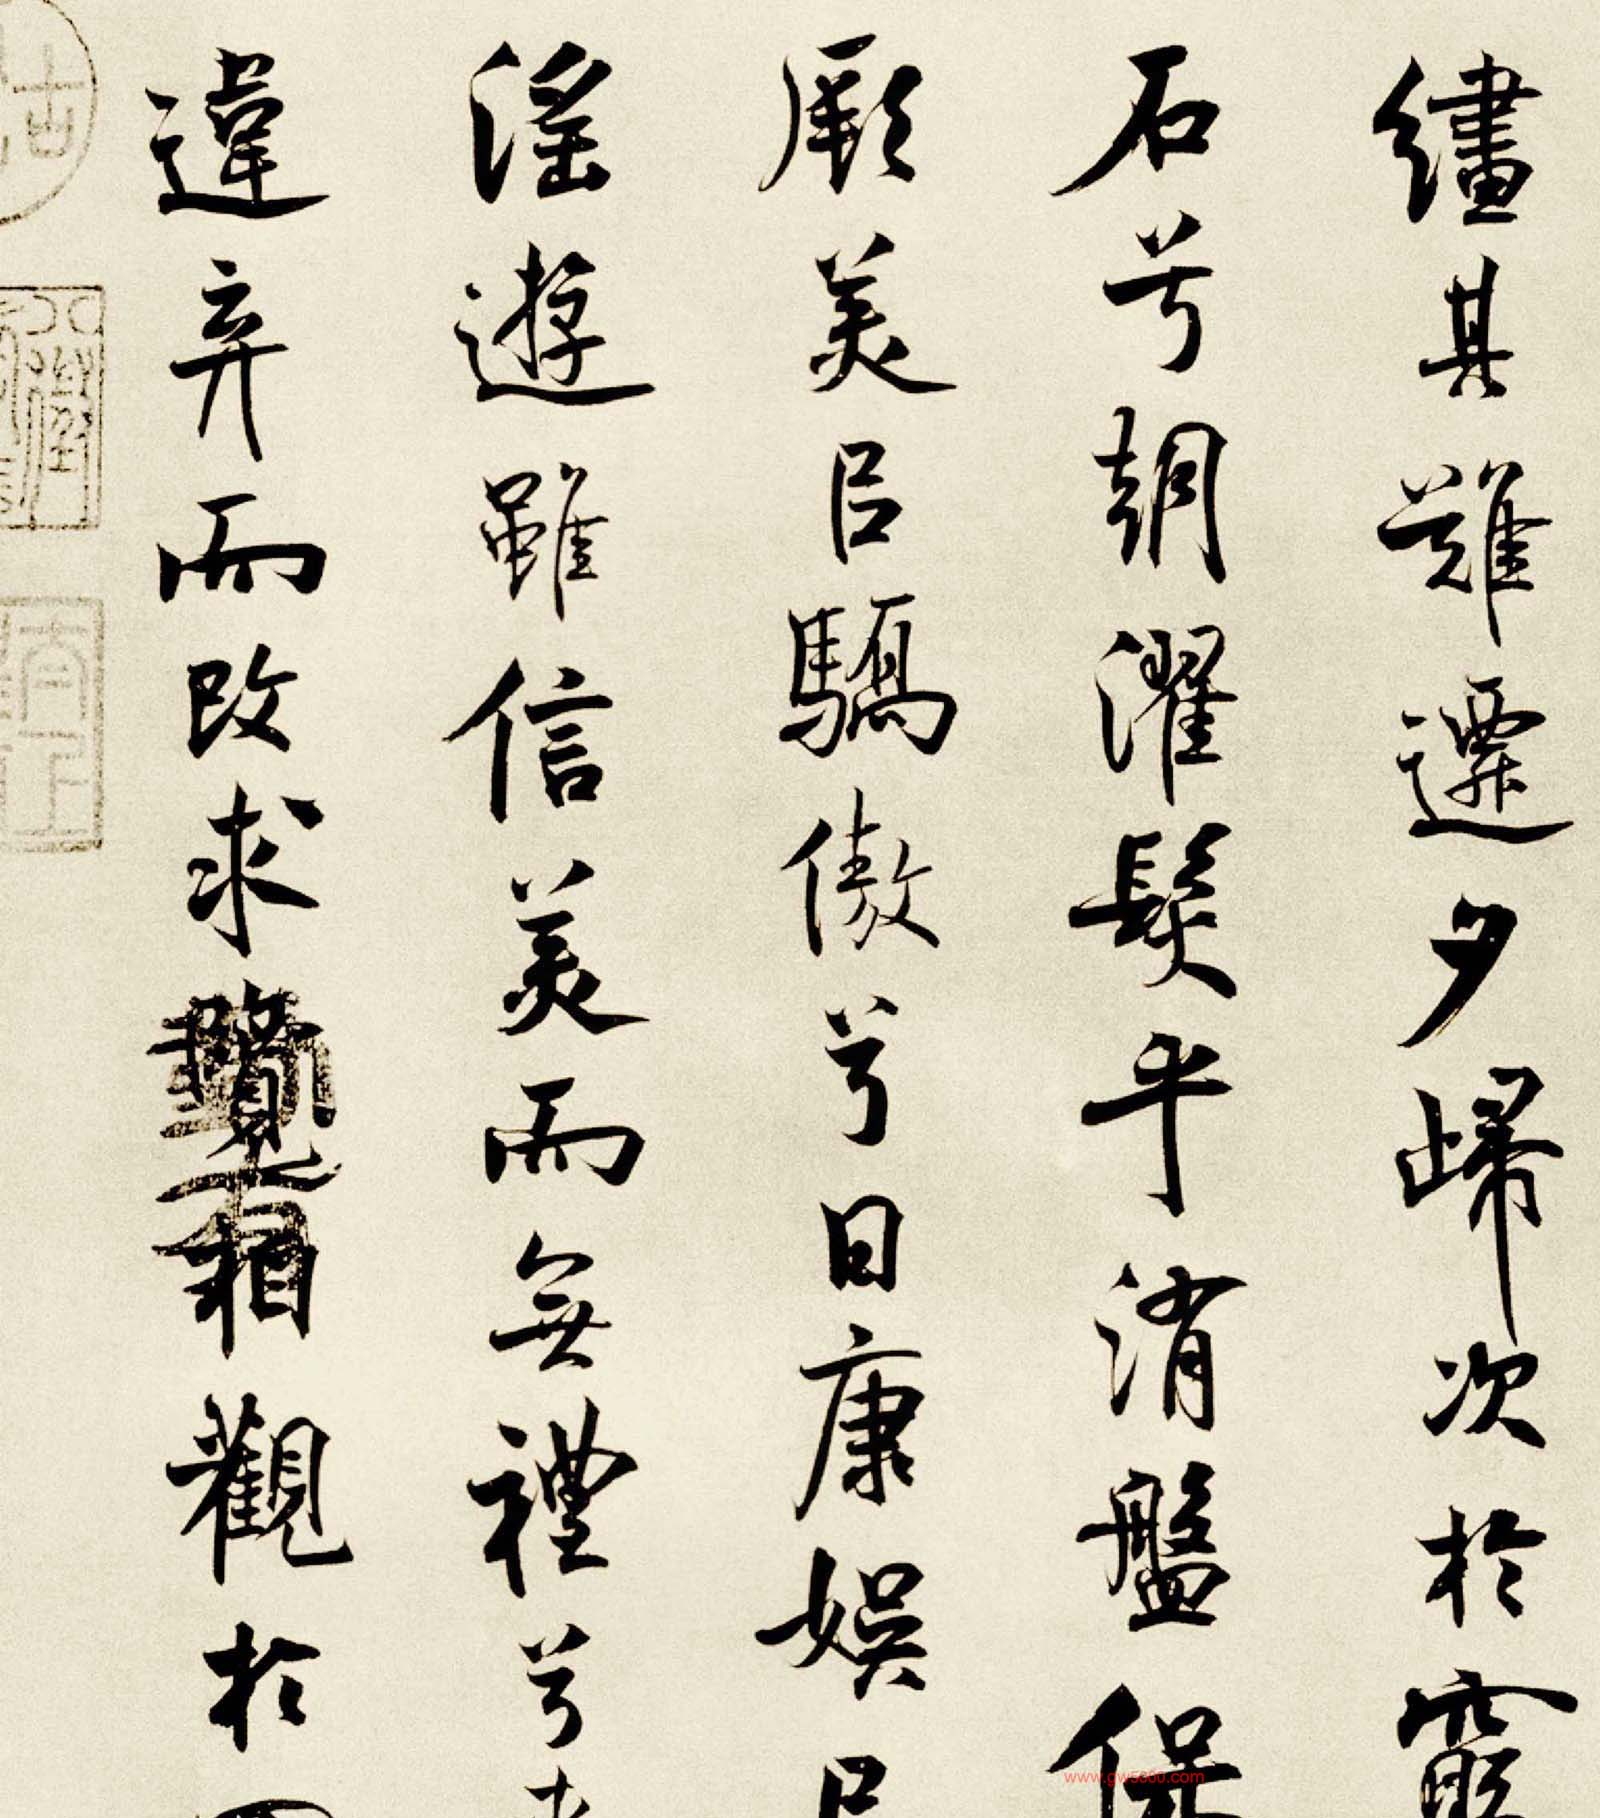 繣其難遷夕歸次於
石兮朝濯髮乎洧盤保
厥美㠯驕傲兮日康娛㠯
滛遊雖信美而無禮兮来
違弃而改求覽相觀於四
www.gw5300.com